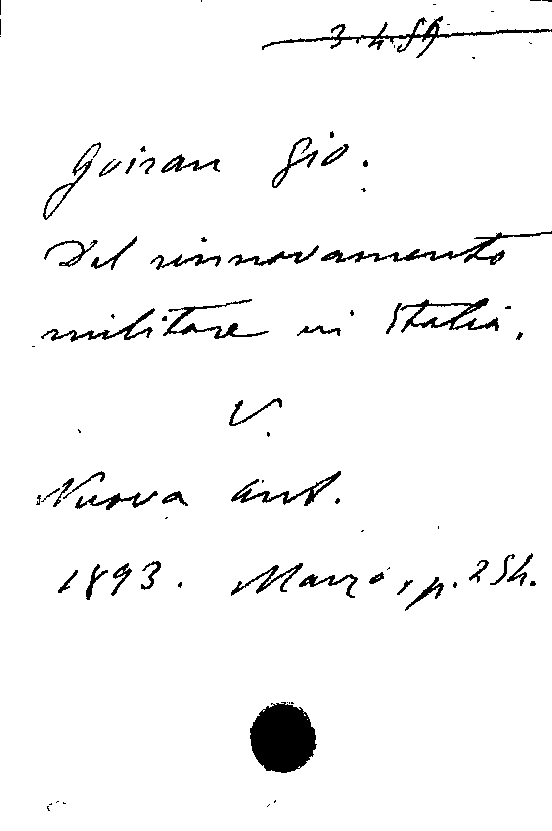 3.4.59
Goiran Gio.
Del rinnovamento
militare in Italia.
V.
Nuova Ant.
1893. Marzo, p. 254.